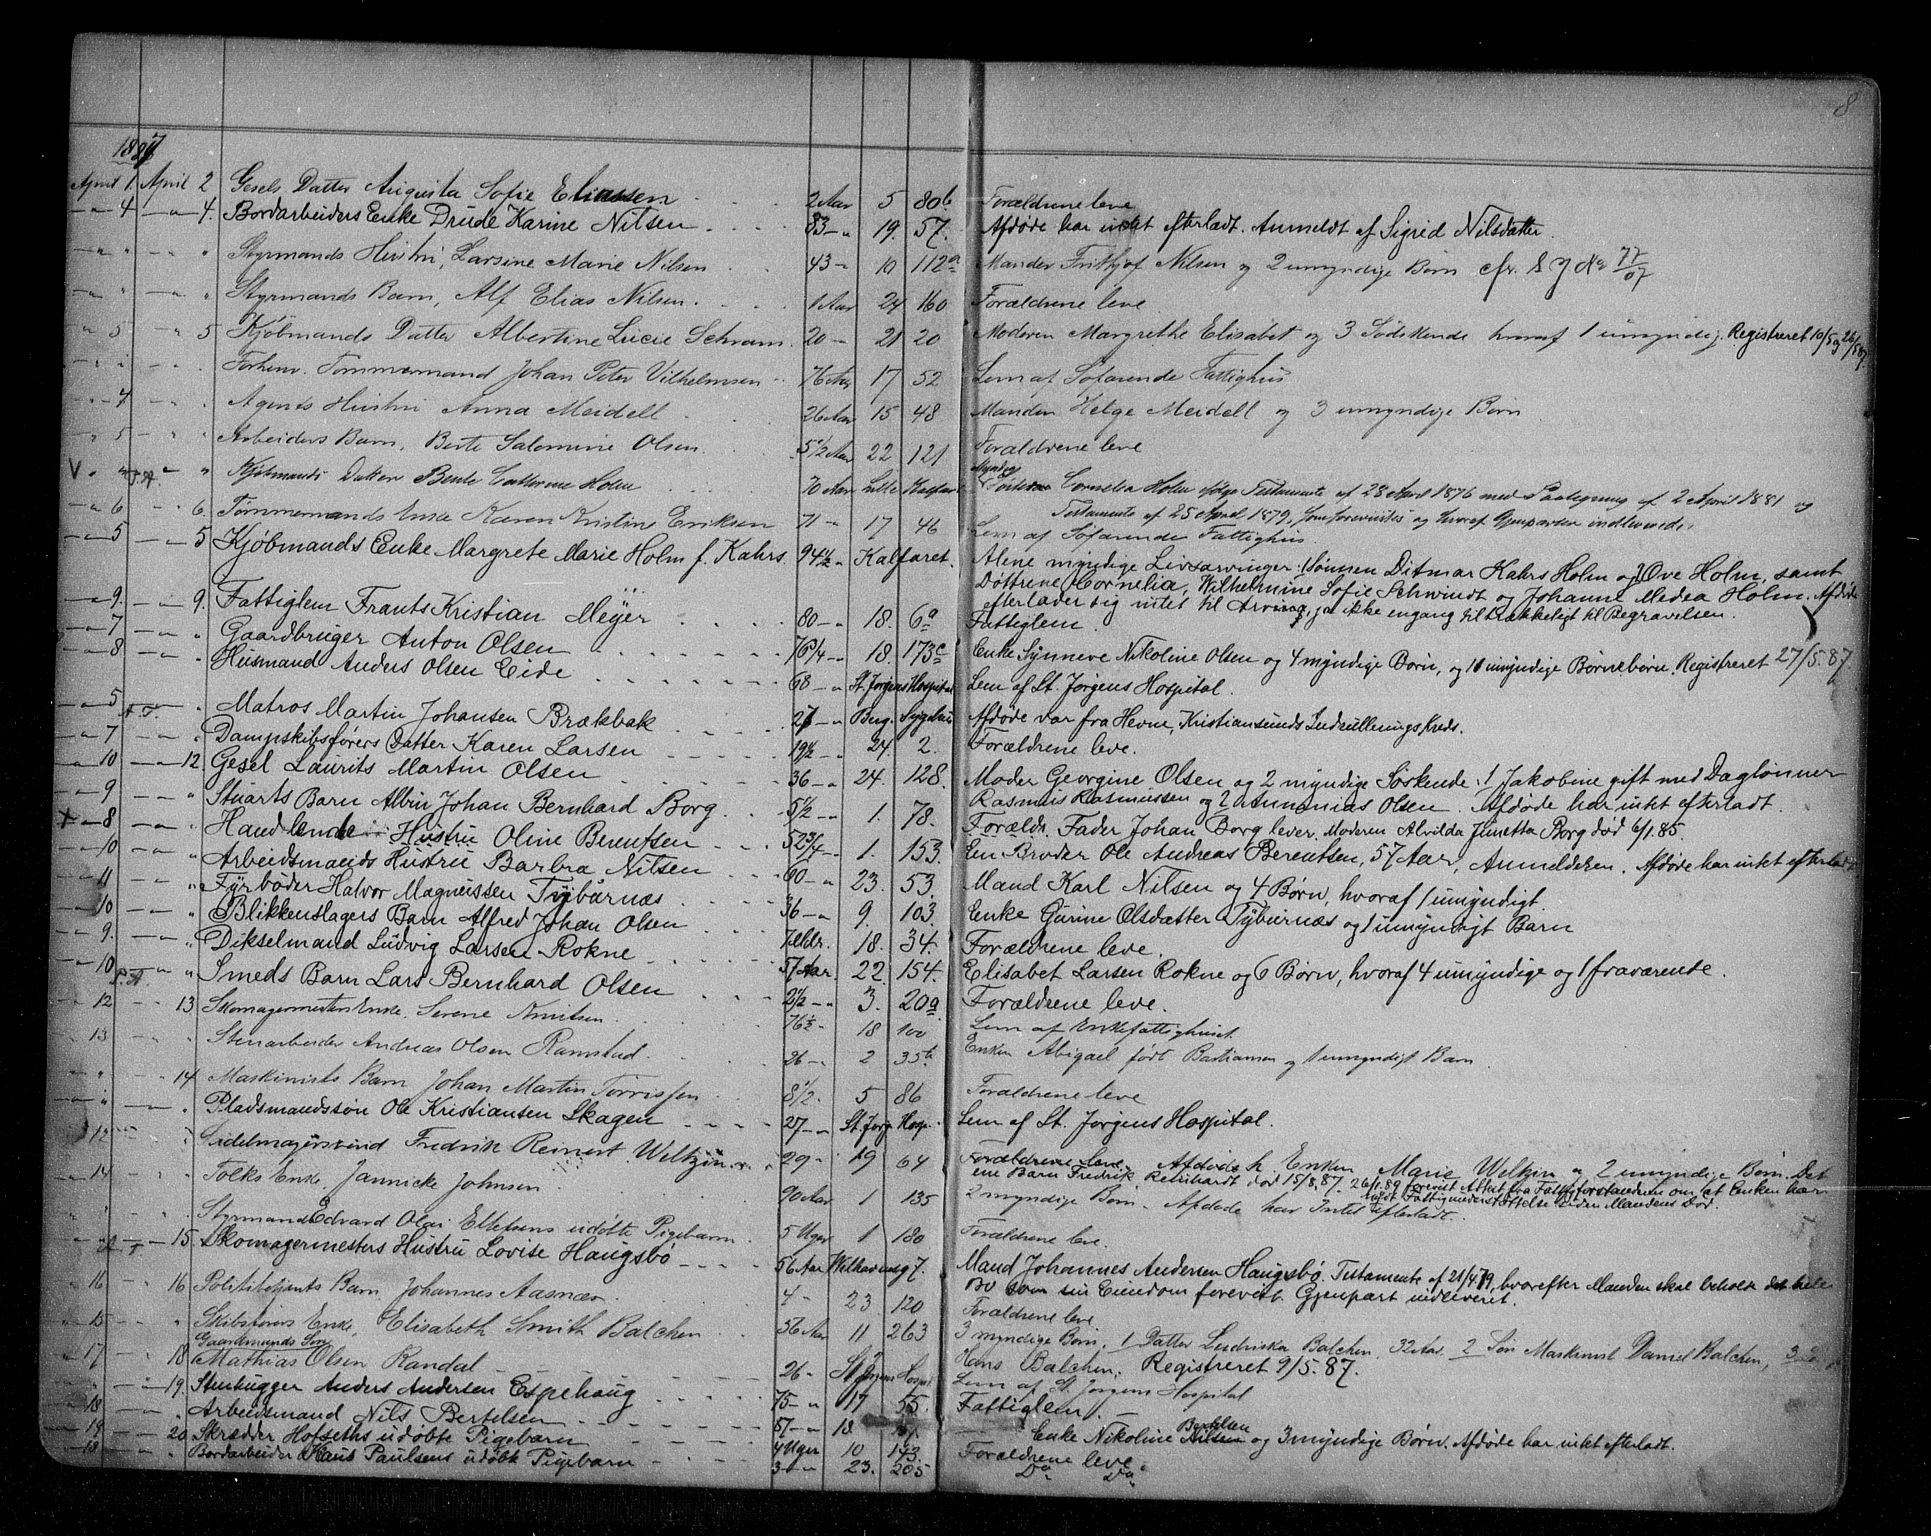 8
1887
April 1 April 2 Gesels Datter Augusta Sofie Eliassen 2 Aar 5 80b Forældrene leve
4 4. Bordarbeiders Enke Drude Karine Nilsen 83 19. 57. Afdøde har intet efterladt. Anmeldt af Sigrid Nilsdatter.
Styrmands Hustru, Larsine Marie Nilsen 43 10 112a Manden Frithjof Nilsen og 2 umyndige Børn cfr. S J No 77/07
Styrmands Barn, Alf Elias Nilsen 1 Aar 24 160 Forældrene leve
5 5 Kjøbmands Datter Albertine Lucie Schram 20 21 20 Moderen Margrethe Elisabet og 3 Sødskende hvoraf 1 umyndig. Registreret 10/5 og 26/5 87.
Forhenv. Tømmermand Johan Peter Vilhelmsen 76 Aar 17 52 Lem af Søfarende Fattighus
4 Agents Hustru Anna Meidell 36 Aar 15 48 Manden Helge Meidell og 3 umyndige Børn
5 Arbeiders Barn, Berte Salomine Olsen 5 1/2 Aar 22 121 Forældrene leve
V Kjøbmands Datter Bente Cathrine Holm 70 Aar Lille Kalfaret Myndige Søsteren Cornelia Holm ifølge Testamente af 28 April 1876 med Paategning af 2 April 1881 og
Testamente af 25 April 1879, som foreviistes og hvoraf Gjenparten indleveredes
6 6. Tømmermands Enke Karen Kristine Eriksen 71 17 46 Lem af Søfarende Fattighus.
5 5 Kjøbmands Enke Margrete Marie Holm f. Kahrs. 94 1/2 Kalfaret. Alene myndige Livsarvinger: Sønnen Ditmar Kahrs Holm og Ove Holm, samt
Døttrene Cornelia, Wilhelmine Sofie Schwindt og Johanne Medea Holm. Afdøde
efterlader sig intet til Arving, ja ikke engang tilstrækkeligt til Begravelsen.
9. 9. Fattiglem Frants Kristian Meyer 80 18. 6a Fattiglem.
7 Gaardbruger Anton Olsen 76 1/4 18. 173c Enke Synneve Nikoline Olsen og 4 myndige Børn, og 11 umyndige Børnebørn. Registreret 27/5.87.
8 Husmand Anders Olsen Eide 68 St. Jørgens Hospital Lem af St. Jørgens Hospital.
5 A.T. Matros Martin Johansen Brækbak 27 Berg. Sygehus Afdøde var fra Hevne, Kristiansunds Indrulleringskreds.
7 Dampskibsførers Datter Karen Larsen 19 1/2 24 2. Forældrene leve.
10 12. Gesel Laurits Martin Olsen 36 24. 128. Moder Georgine Olsen og 2 myndige Søskende: 1 Jakobine gift med Dagløner
Rasmus Rasmussen og 2 Annanias Olsen. Afdøde har intet efterladt.
9 Stuarts Barn Albin Johan Bernhard Borg 5 1/2 1. 78. Forældr. Fader Johan Borg lever. Moderen Alvilda Junetta Borg død 6/1.85.
+ 8 Handlende Hustru Oline Berentsen 52 3/4 1. 153. En Broder Ole Andreas Berentsen, 57 Aar, Anmelderen. Afdøde har intet efterladt
10 Arbeidsmands Hustru Barbra Nilsen 60 23. 53. Mand Karl Nilsen og 4 Børn, hvoraf 1 umyndigt.
11 Fyrbøder Halvor Magnussen Tybærnæs 36 9. 103. Enke Gurine Olsdatter Tybærnæs og 1 umyndigt Barn
10 Blikkenslagers Barn Alfred Johan Olsen 18. 34. Forældrene leve.
9. Dikselmand Ludvig Larsen Rokne 57 Aar. 22. 154. Elisabet Larsen Rokne og 6 Børn, hvoraf 4 umyndige og 1 fraværende.
10 Smeds Barn Lars Bernhard Olsen 2 1/2 3. 20a Forældrene leve.
12 13. Skomagermesters Enke, Serene Knutsen 76 1/2 18 100 Lem af Enkefattighuset.
13 Stenarbeider Andreas Olsen Ramstad 26 2 35b Enken Abigael født Bastiansen og 1 umyndigt Barn
14 Maskinists Barn Johan Martin Torrissen 8 1/2 5 86 Forældrene leve
Pladsmandssøn Ole Kristiansen Skagen 27 St. Jørg. Hosp. Lem af St. Jørgens Hospital.
12 Sadelmagersvend Fredrik Reinert Weltzin 29 19 64 Forældrene leve. Afdøde h. Enken Marie Weltzin og 2 umyndige Børn. Det
ene Barn Fredrik Reinhardt død 15/8.87. 26/1.89 forevist Attest fra Fattigforstanderen om, at Enken har
nydt Fattigunderstøttelse siden Mandens Død.
14 Tolks Enke, Jannicke Johnsen 90 Aar 1 135 2 myndige Børn. Afdøde har Intet efterladt.
Styrmand Edvard Olai Ellefsens udøbte Pigebarn 5 Uger 1 180 Forældrene leve.
15. Skomagermesters Hustru Lovise Haugsbø 56 Aar 7. Mand Johannes Andersen Haugsbø. Testamente af 21/4.79, hvorefter Manden skal beholde det hele
Bo som sin Eiendom forevist. Gjenpart indleveret.
16 16 Politibetjents Barn Johannes Aasnæs 4 23 120 Forældrene leve.
15 Skibsførers Enke, Elisabeth Smith Balchen 56 Aar 11 263 3 myndige Børn, 1 Datter Balchen, 32 Aar, 2 Søn Maskinist Daniel Balchen, 3
Hans Balchen. Registreret 9/5.87.
17 18 Gaardmands Søn Mathias Olsen Randal 26 St. Jørgens Hospital Lem af St. Jørgens Hospital
19. Stenhugger Anders Andersen Espehaug 75 17 55. Fattiglem.
18 Arbeidsmand Nils Bertelsen 57 18 Enke Nikoline Nilsen Bertelsen og 3 myndige Børn. Afdøde har intet efterladt.
19 20 Skrædder Hofseths udøbte Pigebarn 4 Uger 10 143. Forældrene leve
18 Bordarbeider Hans Paulsens udøbt Pigebarn 3 23. 205 Do Do